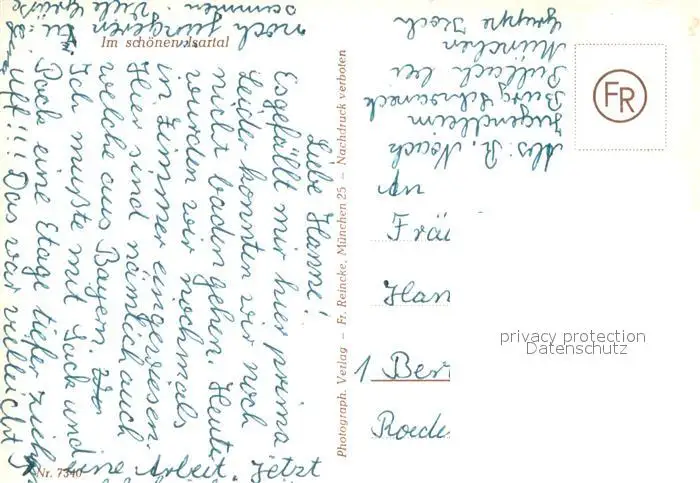 Im schönen Isartal
Liebe Hanne!
Es gefällt mir hier prima
Leider konnten wir noch
nicht baden gehen. Heute
wurden wir nochmals
in Zimmer eingewiesen.
Hier sind nämlich auch
welche aus Bayern.
Ich mußte mit Sack und
Pack eine Etage tiefer
uff!!! Das war vielleicht
eine Arbeit. Jetzt
noch jüngeren
zusammen. Viele Grüße
Nr. 7340
Photograph. Verlag – Fr. Reincke, München 25 – Nachdruck verboten
Abs: R. Noack
Jugendheim
Burg Schwaneck
Pullach bei
München
Gruppe Koch
FR
An
Fräu
Han
1 Ber
Roede
privacy protection
Datenschutz